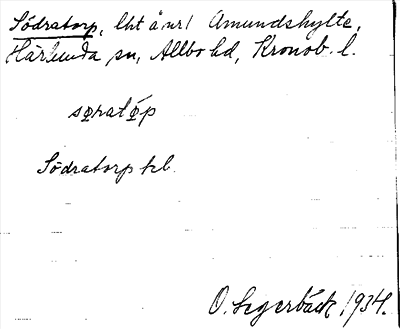 Södratorp, lht å nr 1 Amundshylte,
Härlunda sn, Allbo hd, Kronob. l.
Södratorp kl.
O. Segerbäck 1934.